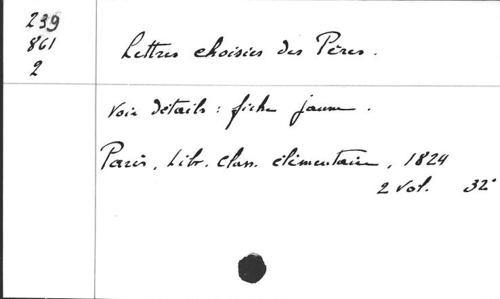 239
861
2
Lettres choisies des Pères.
Voir détails : fiche jaune.
Paris, Libr. Class. élémentaire, 1824
2 Vol. 32°